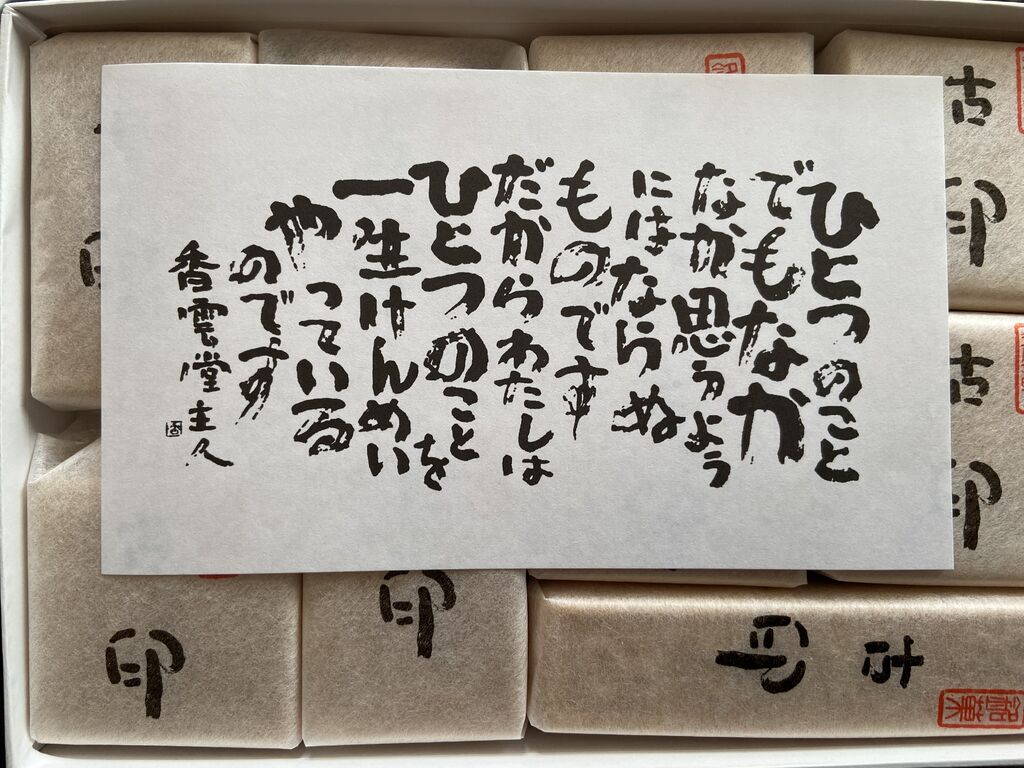 ひとつのこと
でもなか
なか思うよう
にはならぬ
ものです
だからわたしは
ひとつのことを
一生けんめい
やっている
のです
香雲堂主人
古印
古印
印
印